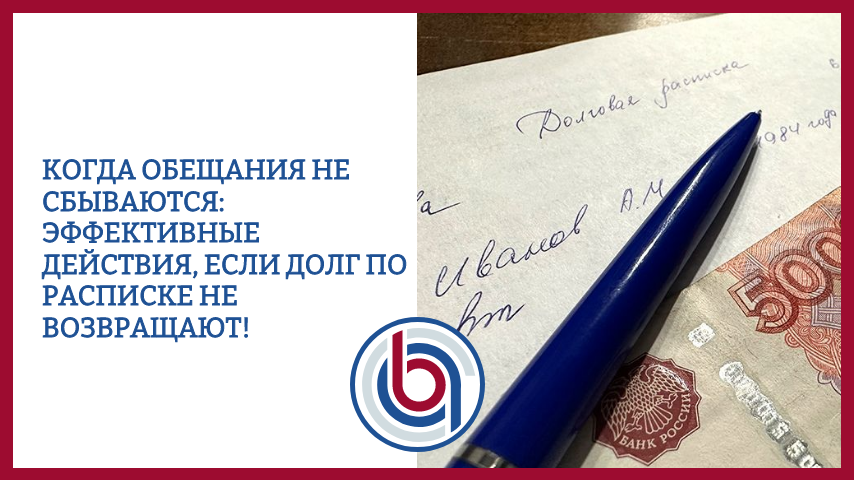 КОГДА ОБЕЩАНИЯ НЕ
СБЫВАЮТСЯ:
ЭФФЕКТИВНЫЕ
ДЕЙСТВИЯ, ЕСЛИ ДОЛГ ПО
РАСПИСКЕ НЕ
ВОЗВРАЩАЮТ!
Долговая расписка
1984 года
Иванов А.М
500
БАНК РОССИИ